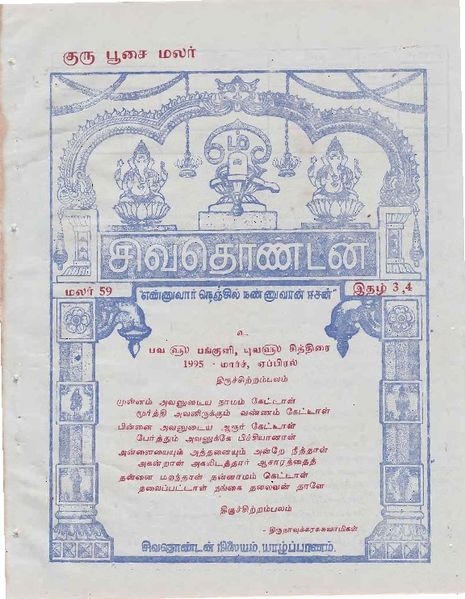 குரு பூசை மலர்
ஓம்
சிவதொண்டன்
மலர் 59
"என்னுவார் நெஞ்சில் நண்ணுவான் ஈசன்"
இதழ் 3,4
உ
பவ ௵ பங்குனி, யுவ௵ சித்திரை
1995 - மார்ச், ஏப்பிரல்
திருச்சிற்றம்பலம்
முன்னம் அவனுடைய நாமம் கேட்டாள்
மூர்த்தி அவனிருக்கும் வண்ணம் கேட்டாள்
பின்னை அவனுடைய ஆரூர் கேட்டாள்
பேர்த்தும் அவனுக்கே பிச்சியானாள்
அன்னையையும் அத்தனையும் அன்றே நீத்தாள்
அகன்றாள் அகலிடத்தார் ஆசாரத்தைத்
தன்னை மறந்தாள் தன்னாமம் கெட்டாள்
தலைப்பட்டாள் நங்கை தலைவன் தாளே
திருச்சிற்றம்பலம்
- திருநாவுக்கரசுசுவாமிகள்
சிவதொண்டன் நிலையம், யாழ்ப்பாணம்.